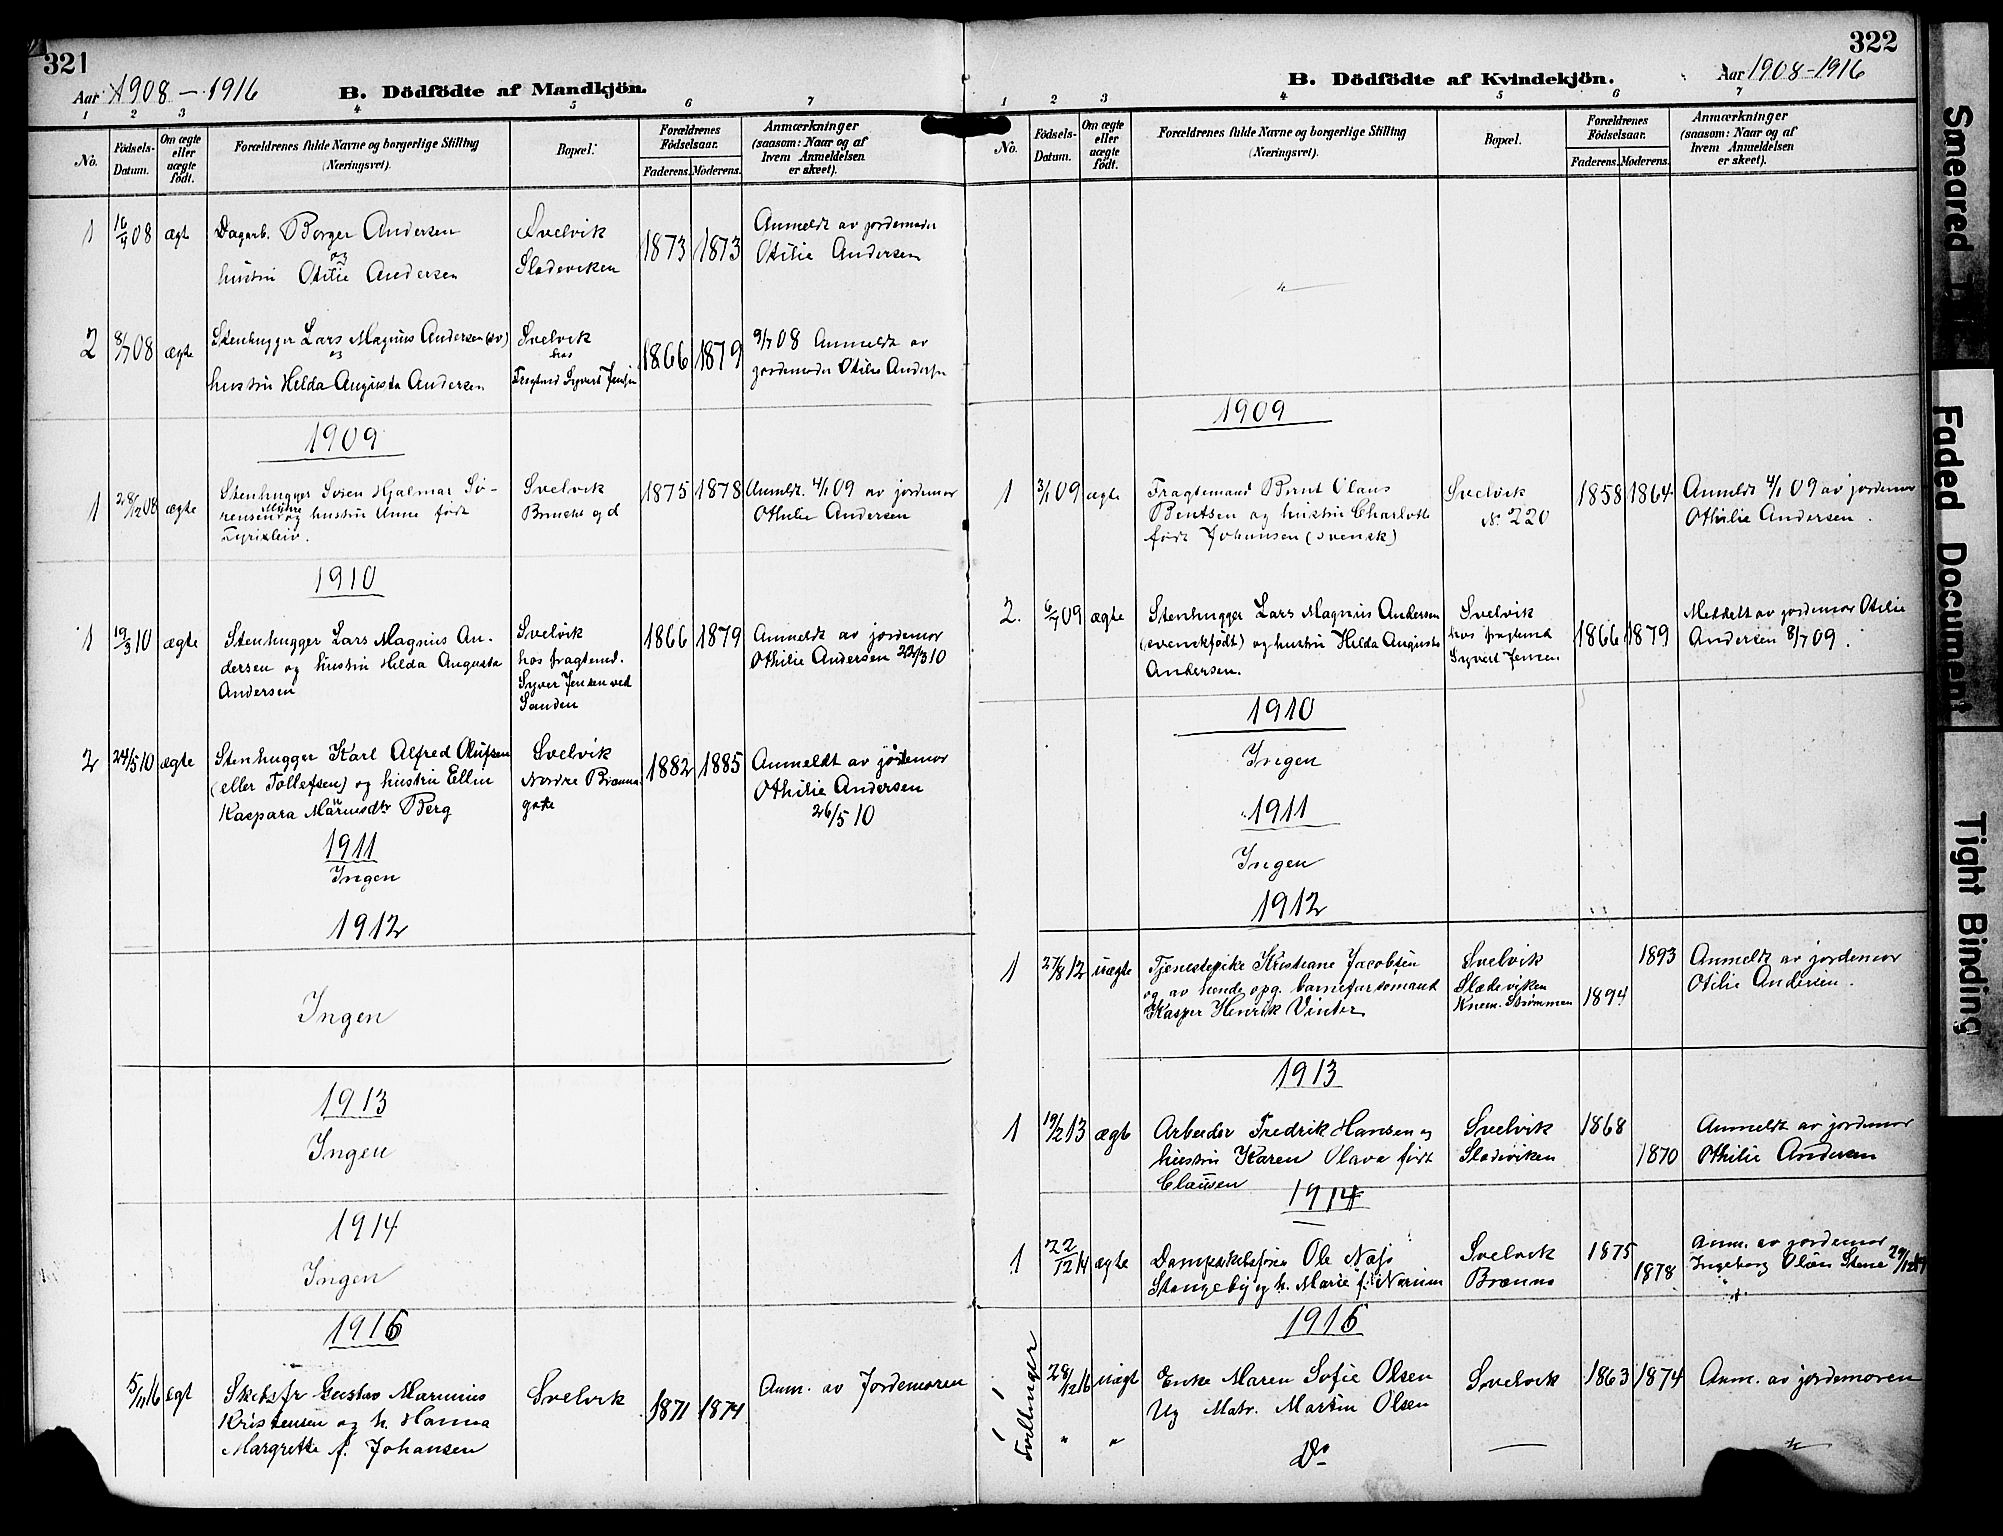 321
Aar 1908 – 1916
B. Dödfödte af Mandkjön.
1 2 3 4 5 6 7
No.
Födsels-Datum.
Om ægte eller uægte födt.
Forældrenes fulde Navne og borgerlige Stilling
(Næringsvei).
Bopæl.
Forældrenes Födselsaar.
Faderens. Moderens.
Anmærkninger
(saasom: Naar og af hvem Anmeldelsen er skeet).
1 16/4 08 ægt Dagarb. Borger Andersen Svelvik 1873 1873 Anmeldt av jordemoder
og
hustru Otilie Andersen Sladeviken Otilie Andersen
2 8/7 08 ægte Stenhugger Lars Magnus Andersen (sv) Svelvik 1866 1879 9/7 08 Anmeldt av
og hos
hustru Helda Augusta Andersen Fragtmd Syvert Jensen jordemoder Otilie Andersen
1909
1 28/12 08 ægte Stenhugger Sven Hjalmar Sö- Svelvik 1875 1878 Anmeldt. 4/1 09 av jordemor
rensen og hustru Anne født Othilie Andersen
1910
1 19/3 10 ægte Stenhugger Lars Magnus An- Svelvik 1866 1879 Anmeldt av jordemor
dersen og hustru Helda Augusta hos fragtemd. Othilie Andersen 22/3 10
Andersen Syver Jensen ved
Sanden
2 24/5 10 ægte Stenhugger Karl Alfred Olufsen Svelvik 1882 1885 Anmeldt av jordemor
(eller Tollefsen) og hustru Ellen Nordre Brenna Othilie Andersen
Kaspara Mariusdtr Berg gate 26/5 10
1911
Ingen
1912
Ingen
1913
Ingen
1914
Ingen
1916
5/11 16 ægt Skibsfr Gustav Marinius Svelvik 1871 1874 Anm. av Jordemoren
Kristensen og h. Hanna
Margrethe f. Johansen
322
Aar 1908 – 1916
B. Dödfödte af Kvindekjön.
1 2 3 4 5 6 7
No.
Födsels-Datum.
Om ægte eller uægte födt.
Forældrenes fulde Navne og borgerlige Stilling
(Næringsvei).
Bopæl.
Forældrenes Födselsaar.
Faderens. Moderens.
Anmærkninger
(saasom: Naar og af hvem Anmeldelsen er skeet).
1909
1 3/1 09 ægte Fragtemand Bernt Olaus Svelvik 1858 1864 Anmeldt 4/1 09 av jordemor
Bentsen og hustru Charlotte N. 220 Othilie Andersen.
født Johansen (svensk)
2. 6/7 09 ægte Stenhugger Lars Magnus Andersen Svelvik 1866 1879 Meddelt av jordemor Otilie
(svenskfødt) og hustru Hilda Augusta hos fragtmd Andersen 8/7 09.
Andersen. Syvert Jensen
1910
Ingen
1911
Ingen
1912
1 27/8 12 uægte Tjenestepike Kristiane Jacobsen Svelvik 1893 Anmeldt av jordemor
og av hende opg. barnefar sømand Sladeviken 1894 Otilie Andersen.
Kasper Henrik Vinter Knem. Strømmen
1913
1 19/2 13 ægte Arbeider Fredrik Hansen og Svelvik 1868 Anmeldt av jordemor
hustru Karen Olava født Sladeviken 1870 Othilie Andersen
Clausen
1914
1 22/12 14 ægte Dampskibsfører Ole Næss Svelvik 1875 Anm. av jordemor
Stangeby og h. Marie f. Narum Brenna 1878 Ingeborg Olsen Stene 29/12 14
1916
1 28/12 16 uægt Enke Maren Sofie Olsen Svelvik 1863 1874 Anm. av jordemoren
Ug Matr. Martin Olsen
1 " " Do —
Tvillinger
Smeared
Faded Document
Tight Binding